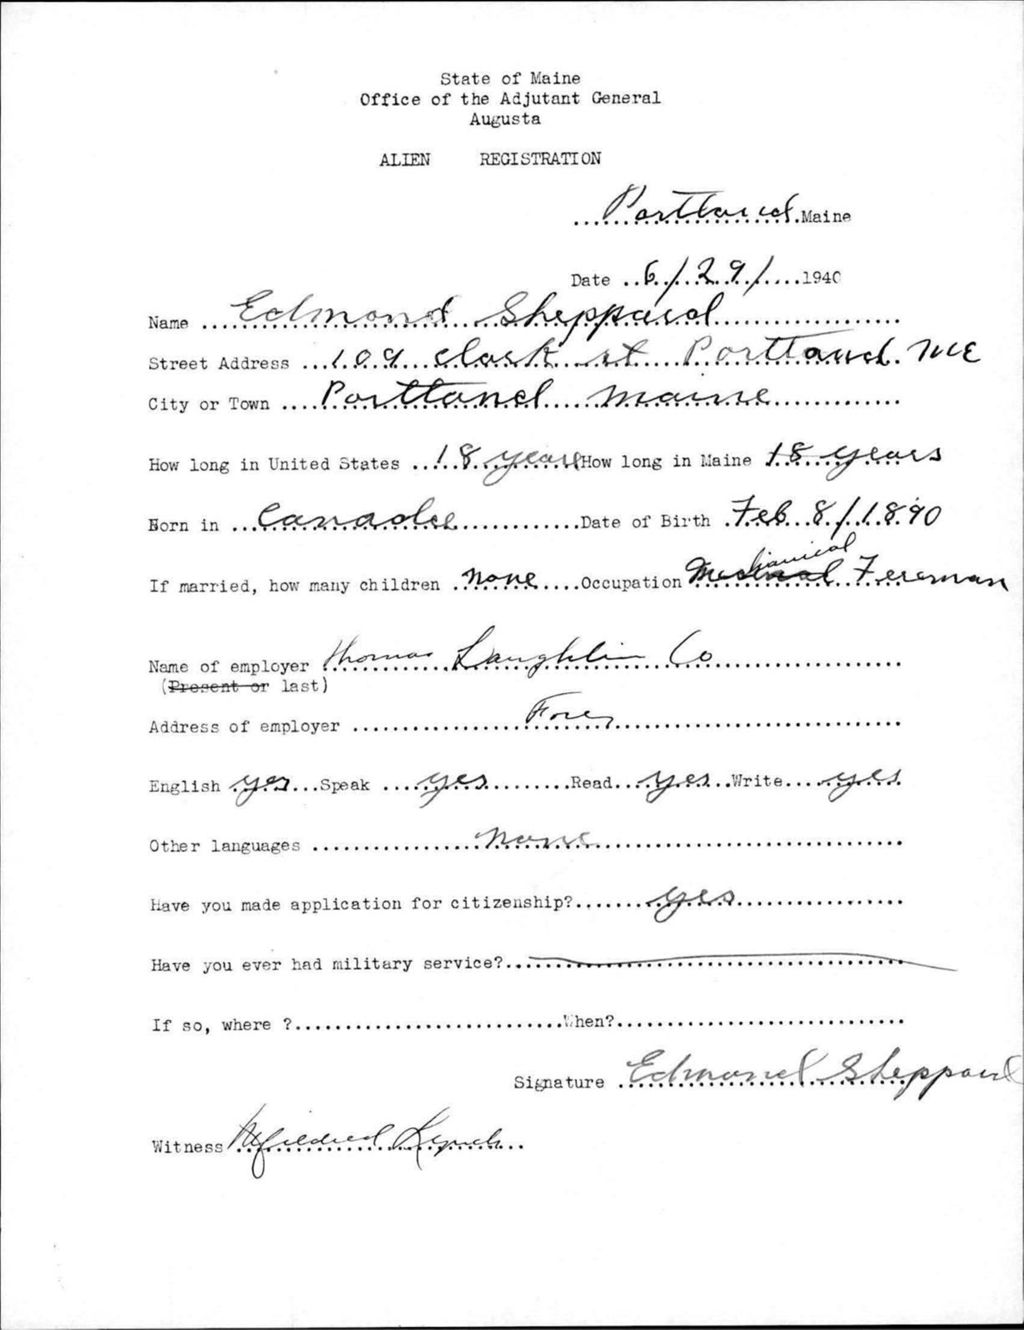 State of Maine
Office of the Adjutant General
Augusta
ALIEN REGISTRATION
Portland Maine
Date 6/29/ 1940
Name Edmond Sheppard
Street Address 109 Clark st Portland. ME
City or Town Portland Maine
How long in United States 18 years How long in Maine 18 years
Born in Canada Date of Birth Feb. 8/1890
If married, how many children none Occupation Mechanical Foreman
Name of employer Thomas Laughlin Co
(Present or last)
Address of employer Fore
English yes Speak yes Read yes Write yes
Other languages none
Have you made application for citizenship? yes
Have you ever had military service?
If so, where ? When?
Signature Edmond Sheppard
Witness Mildred Lynch